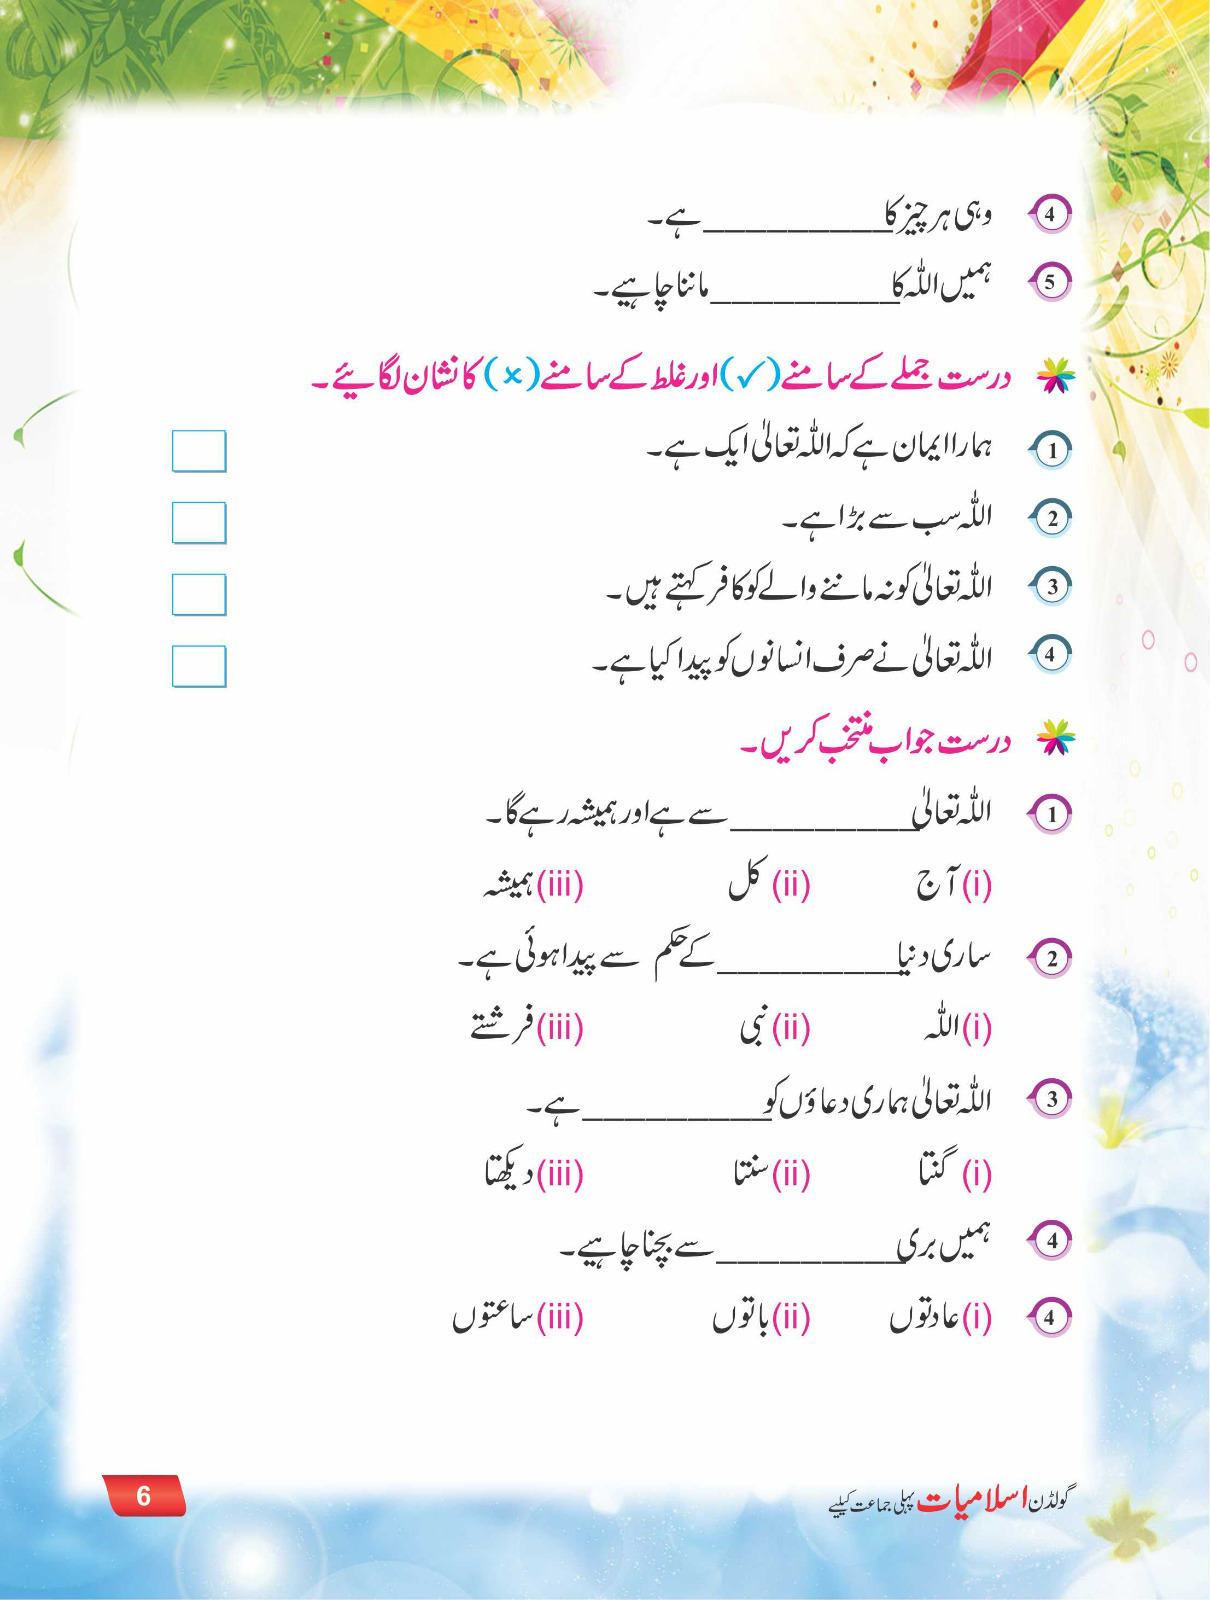 4 وہی ہر چیز کا __________ ہے۔
5 ہمیں اللہ کا __________ ماننا چاہیے۔
درست جملے کے سامنے (✓) اور غلط کے سامنے (×) کا نشان لگائیے۔
1 ہمارا ایمان ہے کہ اللہ تعالیٰ ایک ہے۔
2 اللہ سب سے بڑا ہے۔
3 اللہ تعالیٰ کو نہ ماننے والے کو کافر کہتے ہیں۔
4 اللہ تعالیٰ نے صرف انسانوں کو پیدا کیا ہے۔
درست جواب منتخب کریں۔
1 اللہ تعالیٰ __________ سے ہے اور ہمیشہ رہے گا۔
(i) آج (ii) کل (iii) ہمیشہ
2 ساری دنیا __________ کے حکم سے پیدا ہوئی ہے۔
(i) اللہ (ii) نبی (iii) فرشتے
3 اللہ تعالیٰ ہماری دعاؤں کو __________ ہے۔
(i) گنتا (ii) سنتا (iii) دیکھتا
4 ہمیں بری __________ سے بچنا چاہیے۔
4 (i) عادتوں (ii) باتوں (iii) ساعتوں
گولڈن اسلامیات پہلی جماعت کیلیے
6